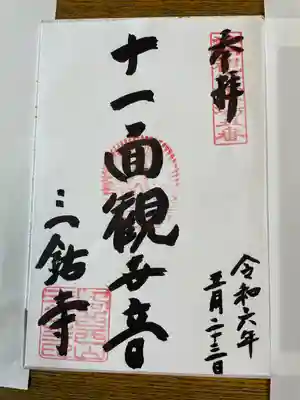 奉拝
令和六年
五月二十三日
十一面観世音
三鈷寺